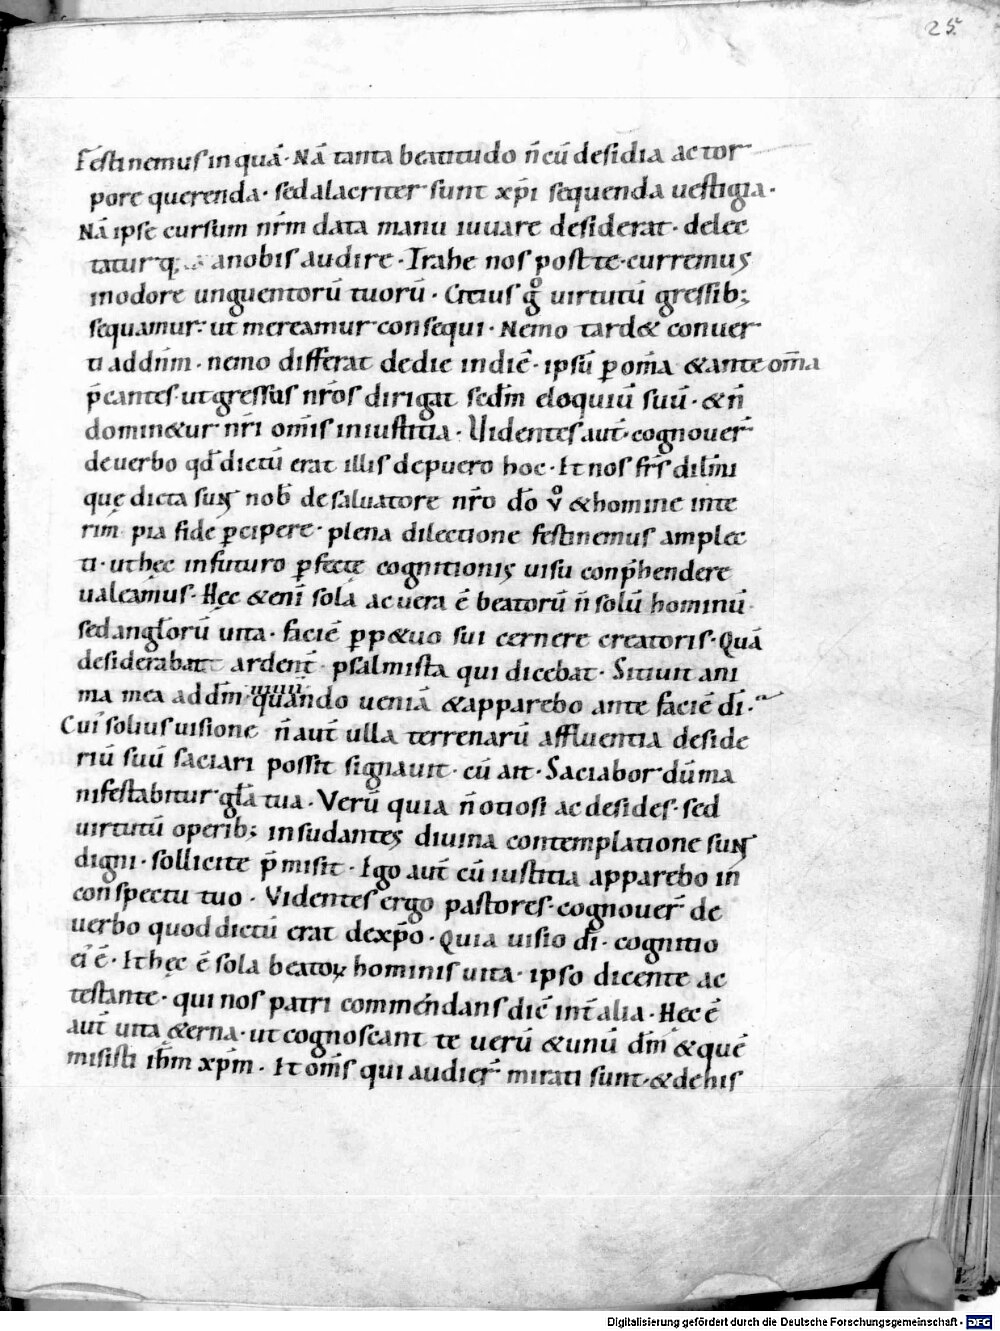 25
Festinemus in quā· Nā tanta beatitudo n̄ cū desidia ac tor
pore querenda· sed alacriter sunt xp̄i sequenda uestigia·
Nā ipse cursum nr̄m data manu iuuare desiderat· delec
tatur q; a nobis audire· Trahe nos post te· curremus
in odore unguentorū tuorū· Citius gͦ uirtutū gressib;
sequamur: ut mereamur consequi· Nemo tard& conuer
ti ad dn̄m· nemo differat de die in diē· ipsū ꝑ om̄a & ante om̄a
p̄cantes· ut gressus nr̄os dirigat sed̄m eloquiū suū· & n̄
domin&ur nr̄i om̄is iniustitia· Uidentes aut̄ cognouer̄
de uerbo qd̄ dictū erat illis de puero hoc· Et nos fr̄s dilm̄i
quę dicta sunt nob̄ de saluatore nr̄o dō uͦ & homine inte
rim pia fide ꝑcipere· plena dilectione festinemus amplec
ti· ut hęc in futuro ꝑfectę cognitionis uisu conp̄hendere
ualeamus· Hęc &enī sola ac uera ē beatorū n̄ solū hominū·
sed angl̄orū uita· faciē ꝑp&uo sui cernere creatoris· Quā
desiderabat ardent̄ psalmista qui dicebat· Sitiuit ani
ma mea ad dm̄ uiuū quando ueniā & apparebo ante faciē dī·
Cui' solius uisione n̄ aut̄ ulla terrenarū affluentia deside
riū suū saciari possit signauit· cū ait· Saciabor dū ma
nifestabitur gl̄a tua· Verū quia n̄ otiosi ac desides· sed
uirtutū operib; insudantes diuina contemplatione sunt
digni· sollicite p̄misit· Ego aut̄ cū iustitia apparebo in
conspectu tuo· Videntes ergo pastores· cognouer̄ de
uerbo quod dictū erat de xp̄o· Quia uisio dī· cognitio
ei' ē· Et hęc ē sola beatoꝝ hominis uita· ipso dicente ac
testante· qui nos patri commendans dic̄ int̄ alia· Hęc ē
aut̄ uita &erna· ut cognoscant te uerū & unū dm̄ & quē
misisti ih̄m xp̄m· Et om̄s qui audier̄ mirati sunt· & de his
Digitalisierung gefördert durch die Deutsche Forschungsgemeinschaft - DFG